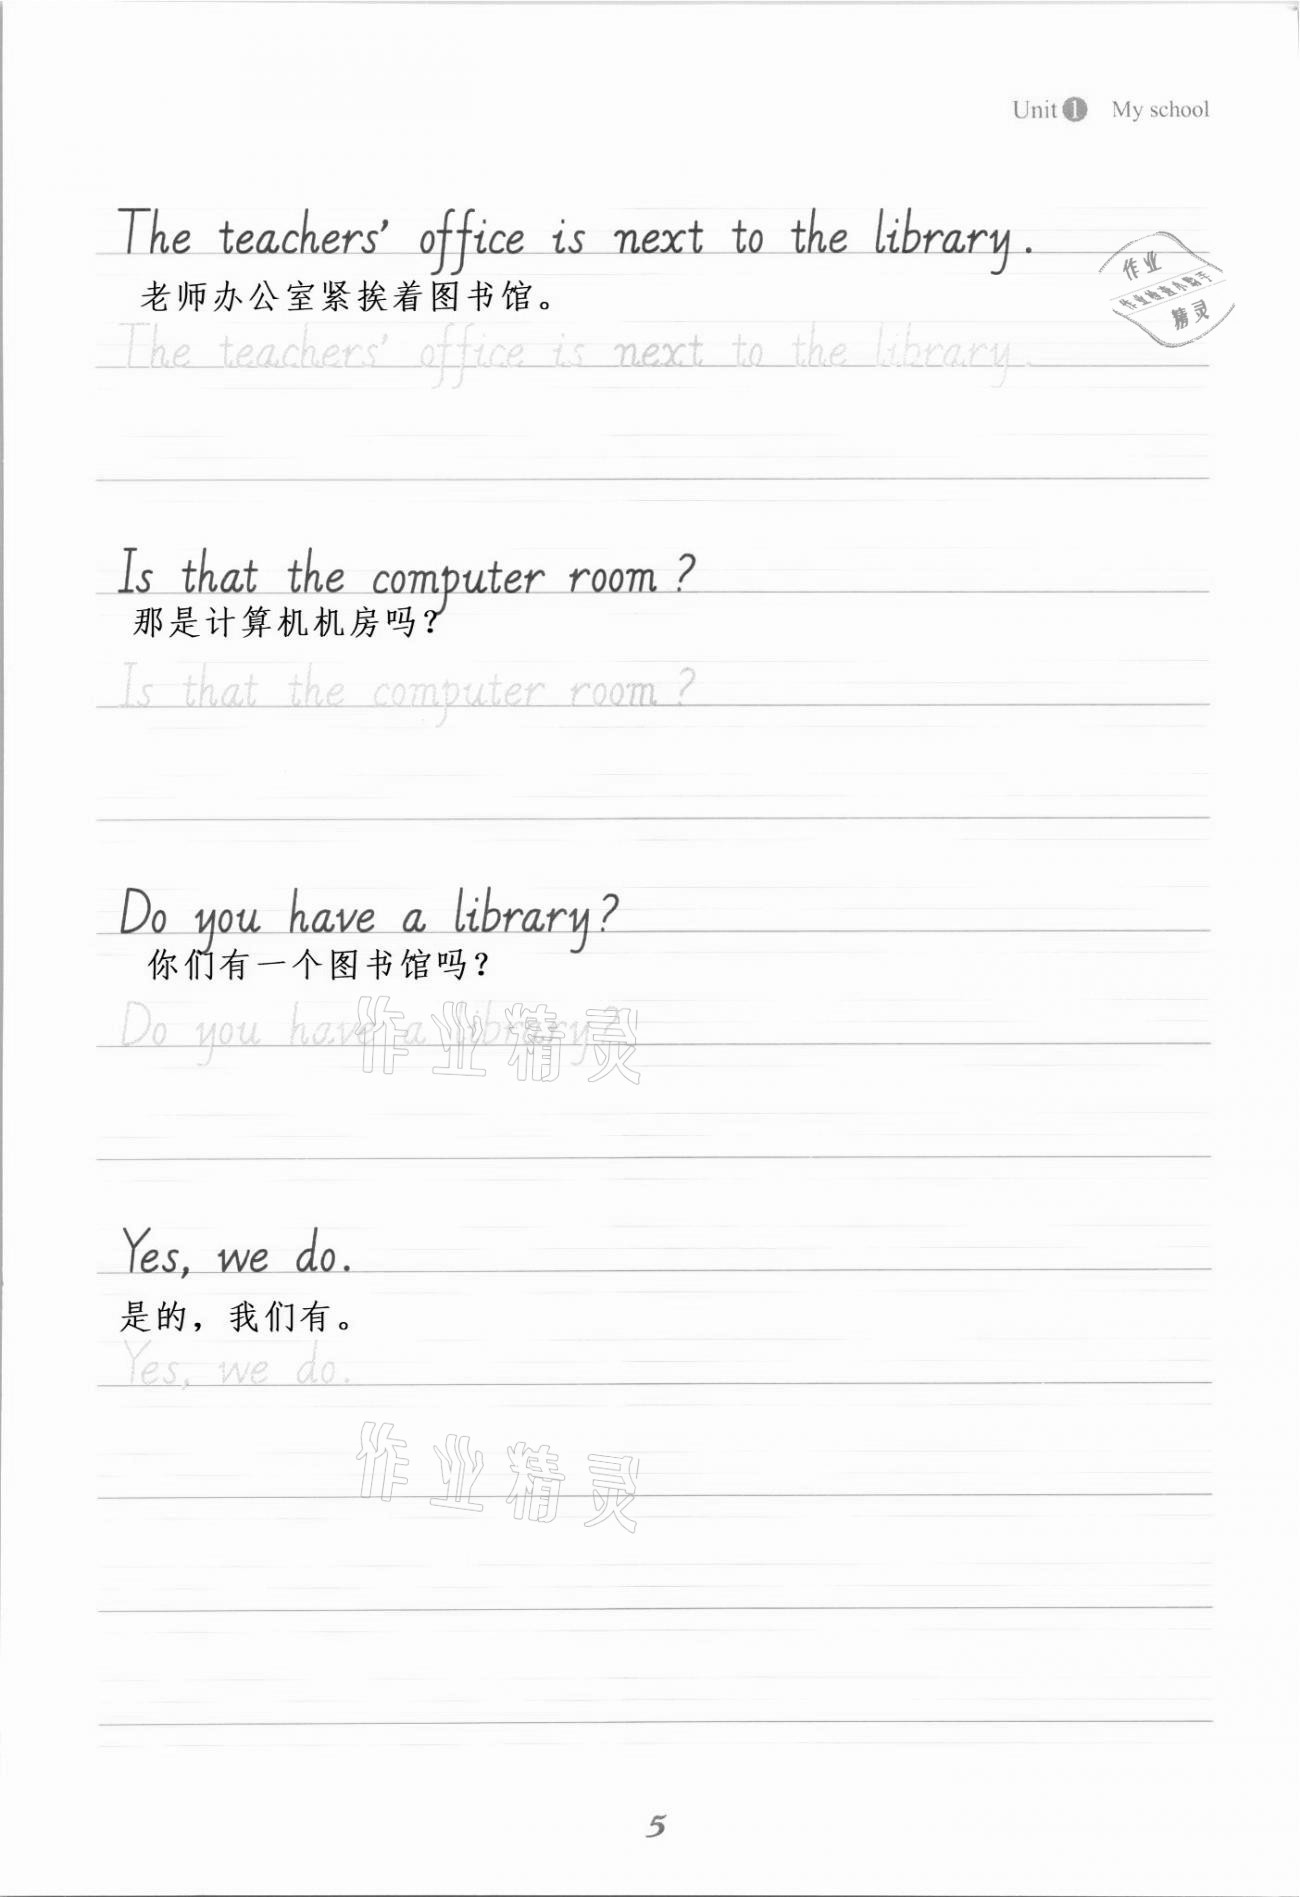 Unit 1 My school
The teachers' office is next to the library.
作业
作业检查小助手
精灵
老师办公室紧挨着图书馆。
The teachers' office is next to the library.
Is that the computer room?
那是计算机机房吗?
Is that the computer room?
Do you have a library?
你们有一个图书馆吗?
Do you have a library?
作业精灵
Yes, we do.
是的，我们有。
Yes, we do.
作业精灵
5